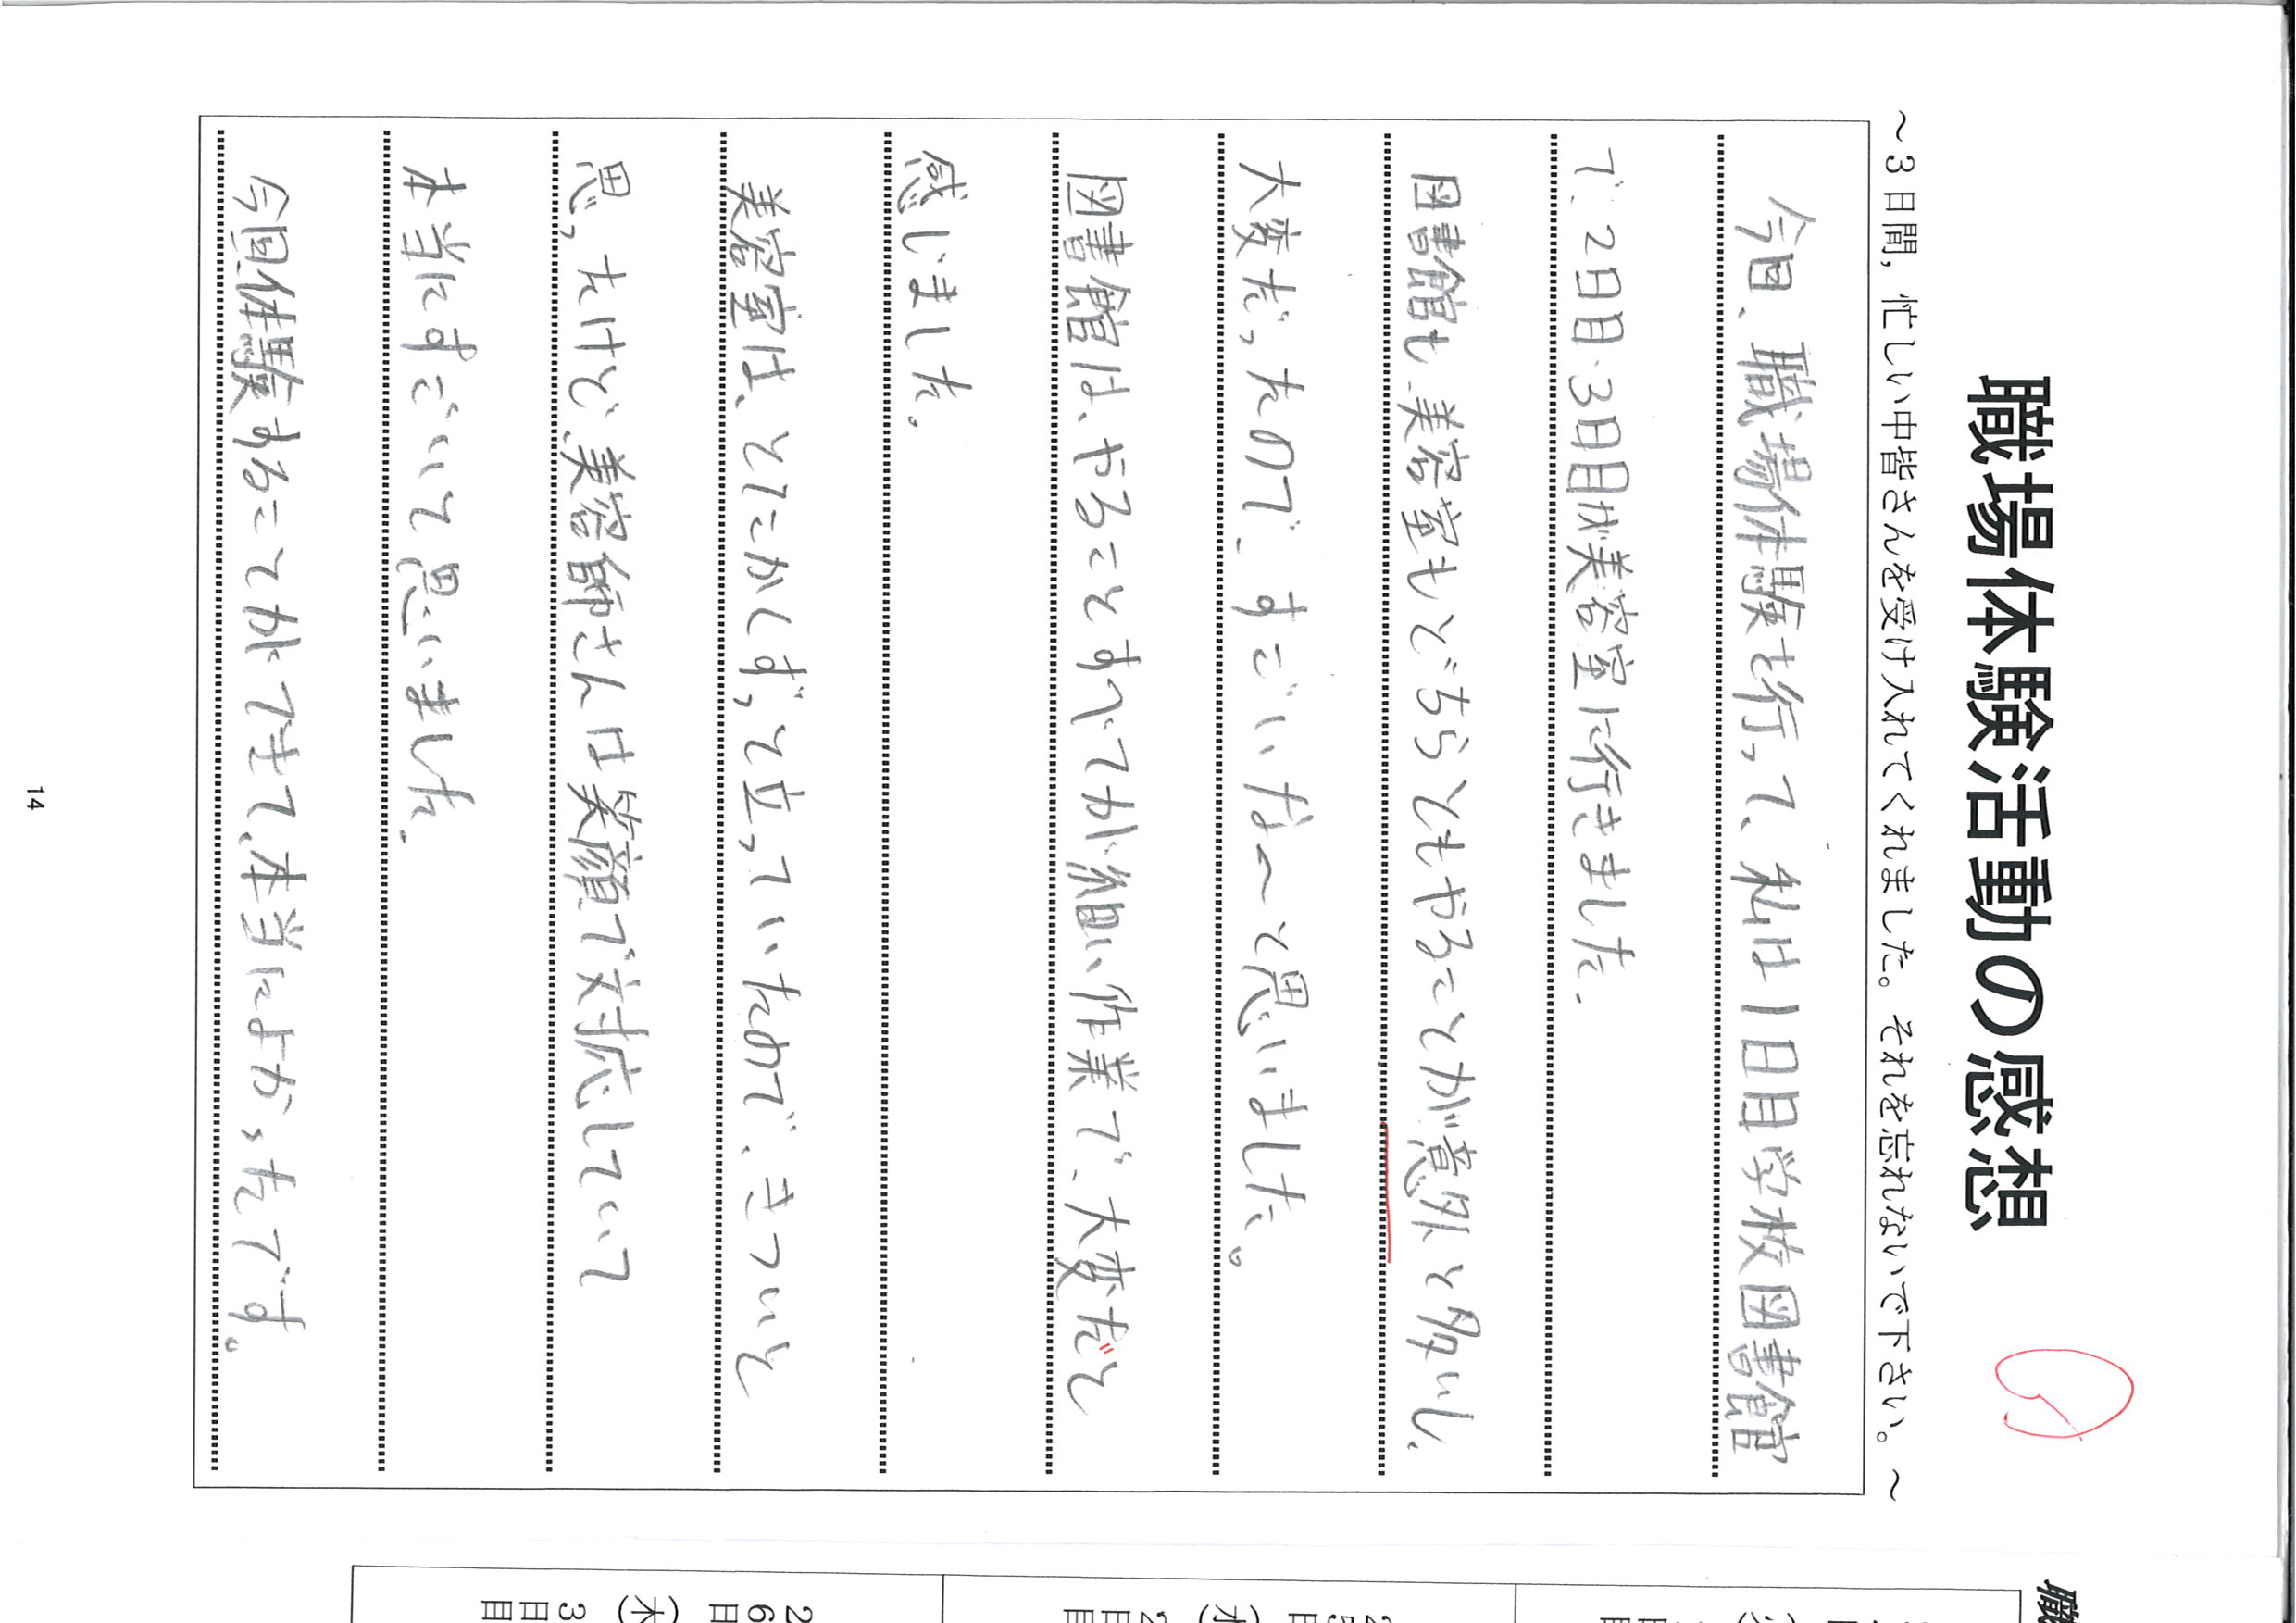 職場体験活動の感想
～3日間，忙しい中皆さんを受け入れてくれました。それを忘れないで下さい。～
今日、職場体験を行って、私は1日目学校図書館
で、2日目・3日目が美容室に行きました。
図書館も、美容室もどちらともやることが意外と多いし、
大変だったので、すごいな～と思いました。
図書館は、やることすべてが細い作業で、大変だと
感じました。
美容室は、とにかくずっと立っていたので、きついと
思ったけど、美容師さんは笑顔で対応していて
本当にすごいて思いました。
今回体験することができて、本当によかったです。
14
職
26日(木)
3日目